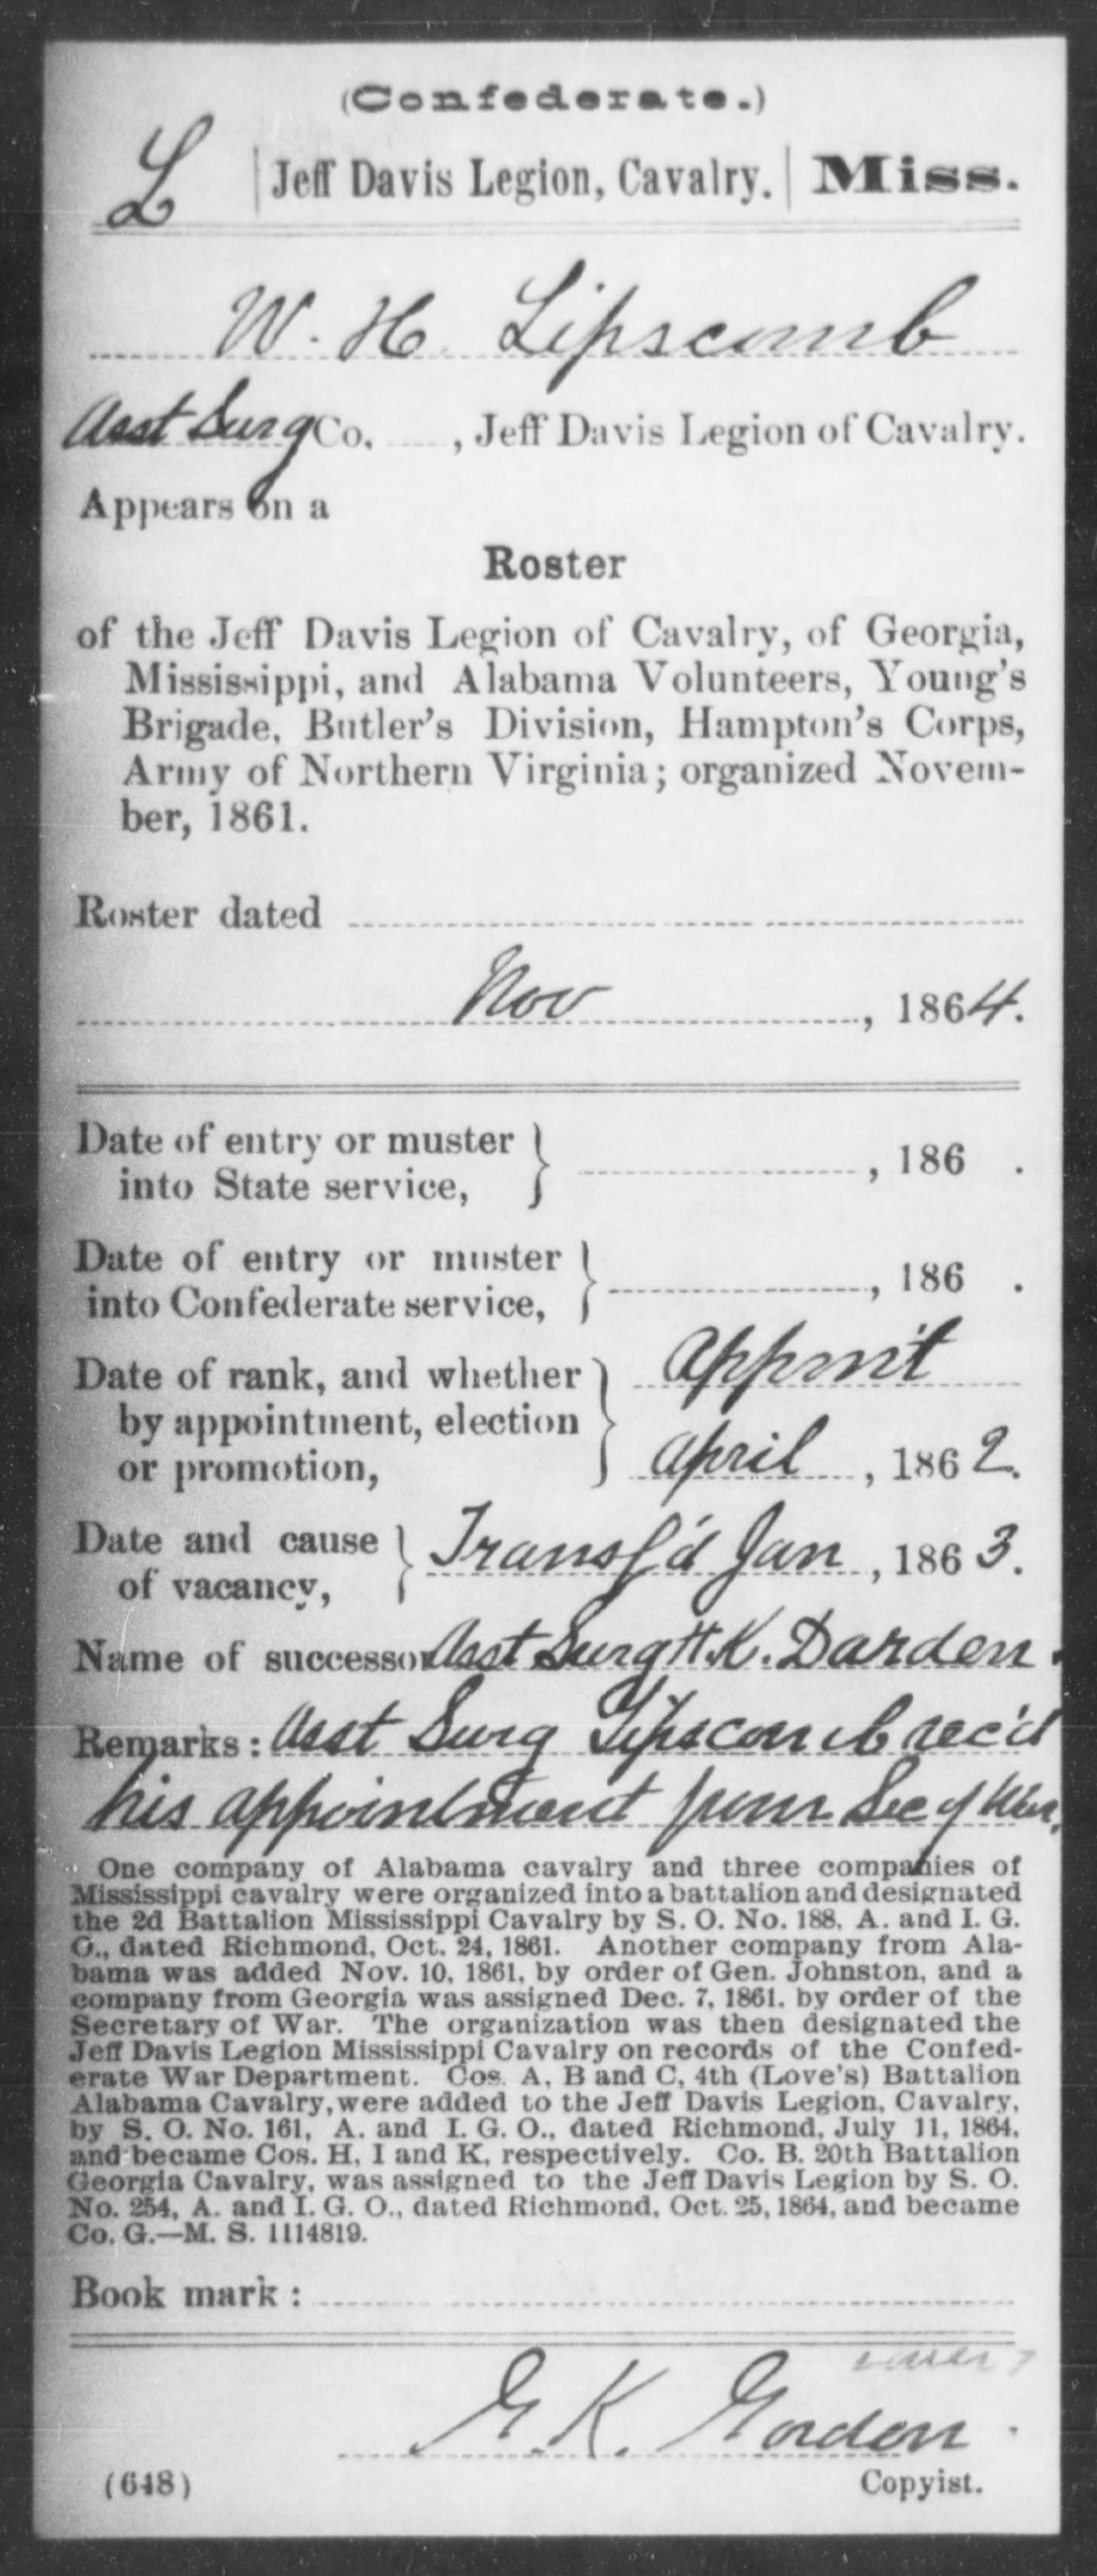 (Confederate.)
L | Jeff Davis Legion, Cavalry. | Miss.
W. H. Lipscomb
Asst Surg Co. , Jeff Davis Legion of Cavalry.
Appears on a
Roster
of the Jeff Davis Legion of Cavalry, of Georgia,
Mississippi, and Alabama Volunteers, Young's
Brigade, Butler's Division, Hampton's Corps,
Army of Northern Virginia; organized Novem-
ber, 1861.
Roster dated
Nov , 1864.
Date of entry or muster
into State service, , 186 .
Date of entry or muster
into Confederate service, , 186 .
Date of rank, and whether Appmt
by appointment, election
or promotion, April , 1862.
Date and cause
of vacancy, Transf'd Jan , 1863.
Name of successor Asst Surg H. K. Darden.
Remarks: Asst Surg Lipscomb rec'd
his appointment from Sec of War.
One company of Alabama cavalry and three companies of
Mississippi cavalry were organized into a battalion and designated
the 2d Battalion Mississippi Cavalry by S. O. No. 188, A. and I. G.
O., dated Richmond, Oct. 24, 1861. Another company from Ala-
bama was added Nov. 10, 1861, by order of Gen. Johnston, and a
company from Georgia was assigned Dec. 7, 1861, by order of the
Secretary of War. The organization was then designated the
Jeff Davis Legion Mississippi Cavalry on records of the Confed-
erate War Department. Cos. A, B and C, 4th (Love's) Battalion
Alabama Cavalry, were added to the Jeff Davis Legion, Cavalry,
by S. O. No. 161, A. and I. G. O., dated Richmond, July 11, 1864,
and became Cos. H, I and K, respectively. Co. B. 20th Battalion
Georgia Cavalry, was assigned to the Jeff Davis Legion by S. O.
No. 254, A. and I. G. O., dated Richmond, Oct. 25, 1864, and became
Co. G.—M. S. 1114819.
Book mark:
G. K. Gordon.
(648) Copyist.